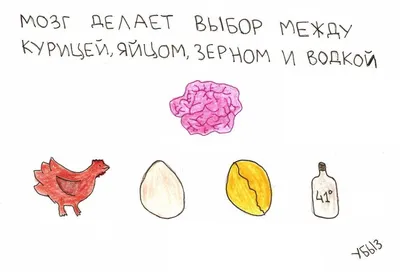 МОЗГ ДЕЛАЕТ ВЫБОР МЕЖДУ
КУРИЦЕЙ, ЯЙЦОМ, ЗЕРНОМ И ВОДКОЙ
41°
УБЫЗ